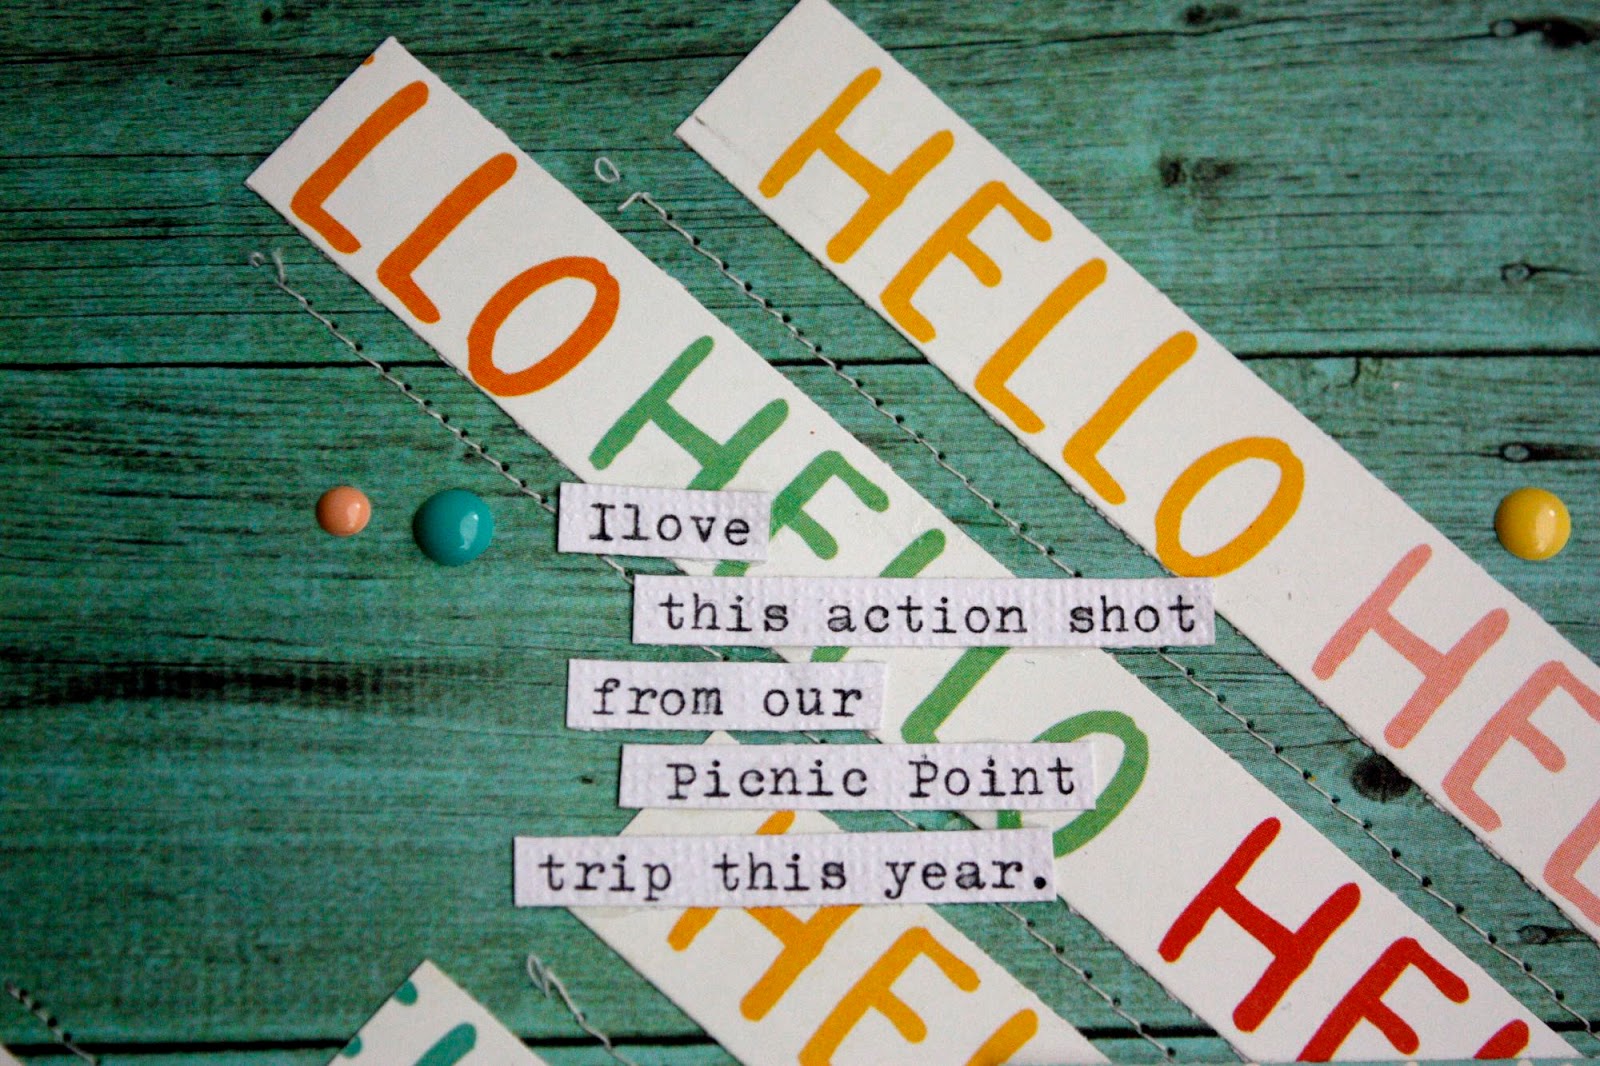 LLO HELLO HE
HELLO HE
Ilove
this action shot
from our
Picnic Point
trip this year.
HE